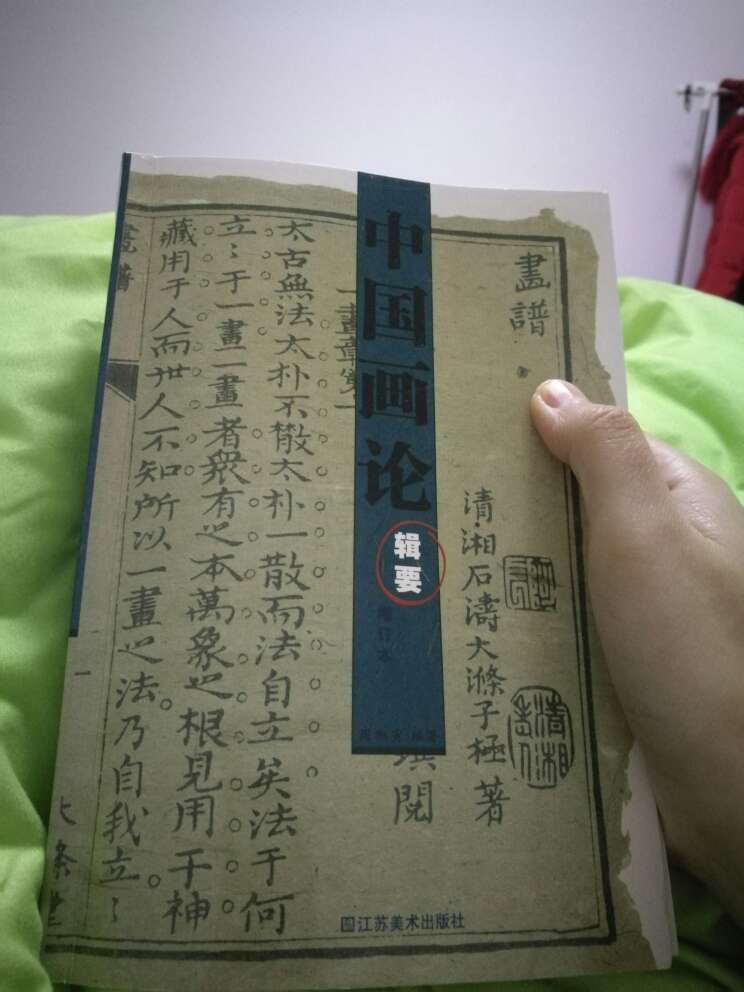 中国画论
辑要
增订本
畫譜
清湘石濤大滌子極著
閱
一畫章第一
太古無法太朴不散太朴一散而法自立矣法于何
立〻于一畫一畫者衆有之本萬象之根見用于神
藏用于人而世人不知所以一畫之法乃自我立〻
畫譜
一
江苏美术出版社